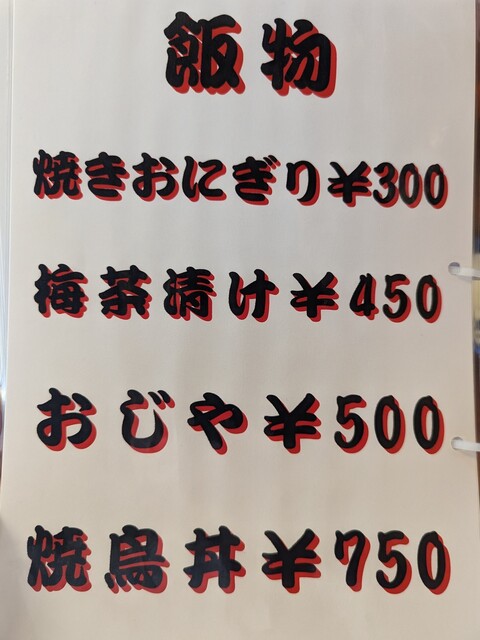 飯物
焼きおにぎり¥300
梅茶漬け¥450
おじや¥500
焼鳥丼¥750